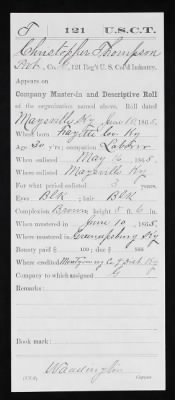 T | 121 | U.S.C.T.
Christopher Thompson
Pvt., Co. , 121 Reg't U. S. Col'd Infantry.
Appears on
Company Muster-in and Descriptive Roll
of the organization named above. Roll dated
Maysville Ky June 10, 1865.
Where born Fayette Co. Ky
Age 30 y'rs; occupation Laborer
When enlisted May 16, 1865.
Where enlisted Maysville Ky
For what period enlisted 3 years.
Eyes Blk ; hair Blk
Complexion Brown; height 5 ft. 6 in.
When mustered in June 10, 1865.
Where mustered in Ky
Bounty paid $ 100; due $ 100
Where credited Montgomery Co Dist Ky
Company to which assigned
Remarks:
Book mark:
Copyist.